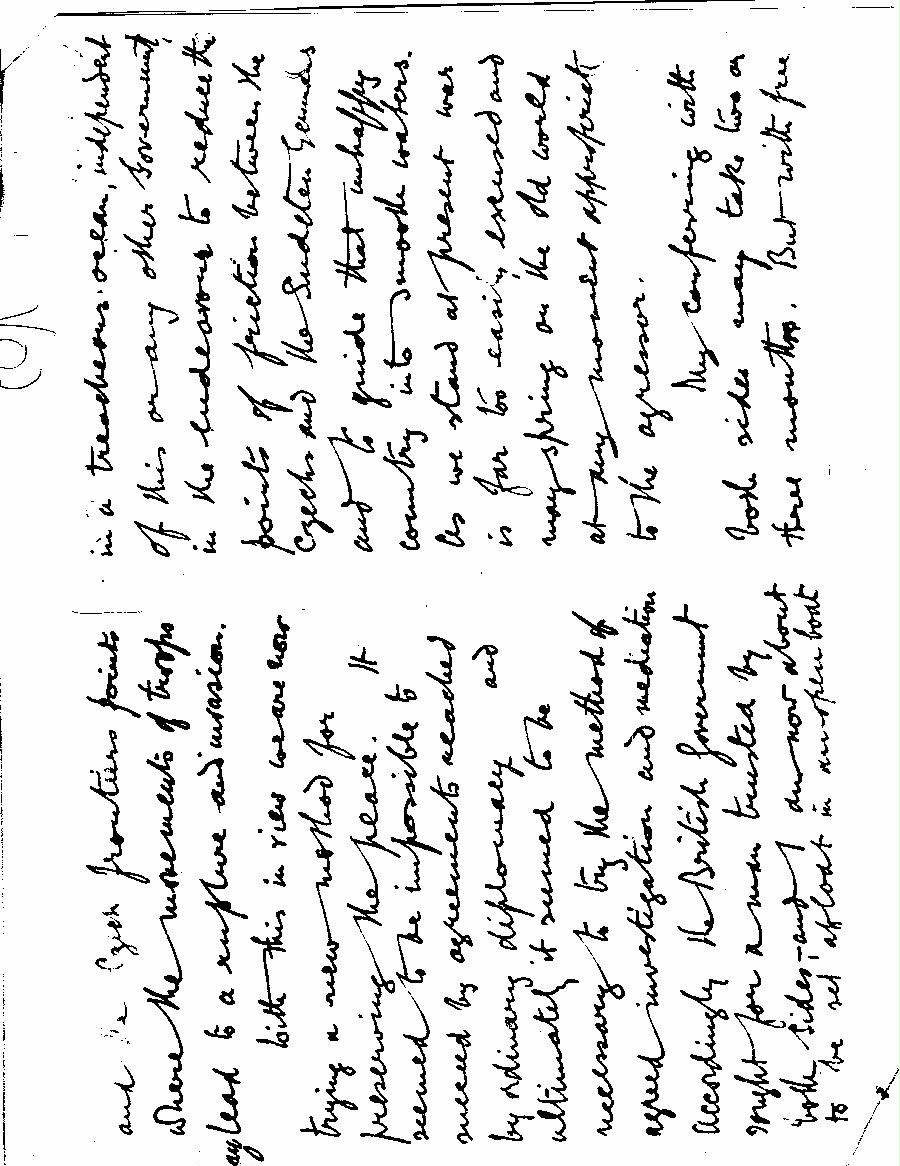 and the Czech frontiers points
where the movements of troops
may lead to a rupture and invasion.
With this in view we are now
trying a new method for
preserving the peace. It
seemed to be impossible to
succeed by agreements reached
by ordinary diplomacy and
ultimately it seemed to be
necessary to try the method of
agreed investigation and mediation
Accordingly the British Government
sought for a man trusted by
both sides, – and I am now about
to be set afloat in an open boat
in a treacherous ocean, independent
of this or any other Government,
in the endeavour to reduce the
points of friction between the
Czechs and the Sudeten Germans
and to guide that unhappy
country into smooth waters.
As we stand at present war
is far too easily excused and
may spring on the old world
at any moment appropriate
to the agressor.
My conferring with
both sides may take two or
three months. But with free